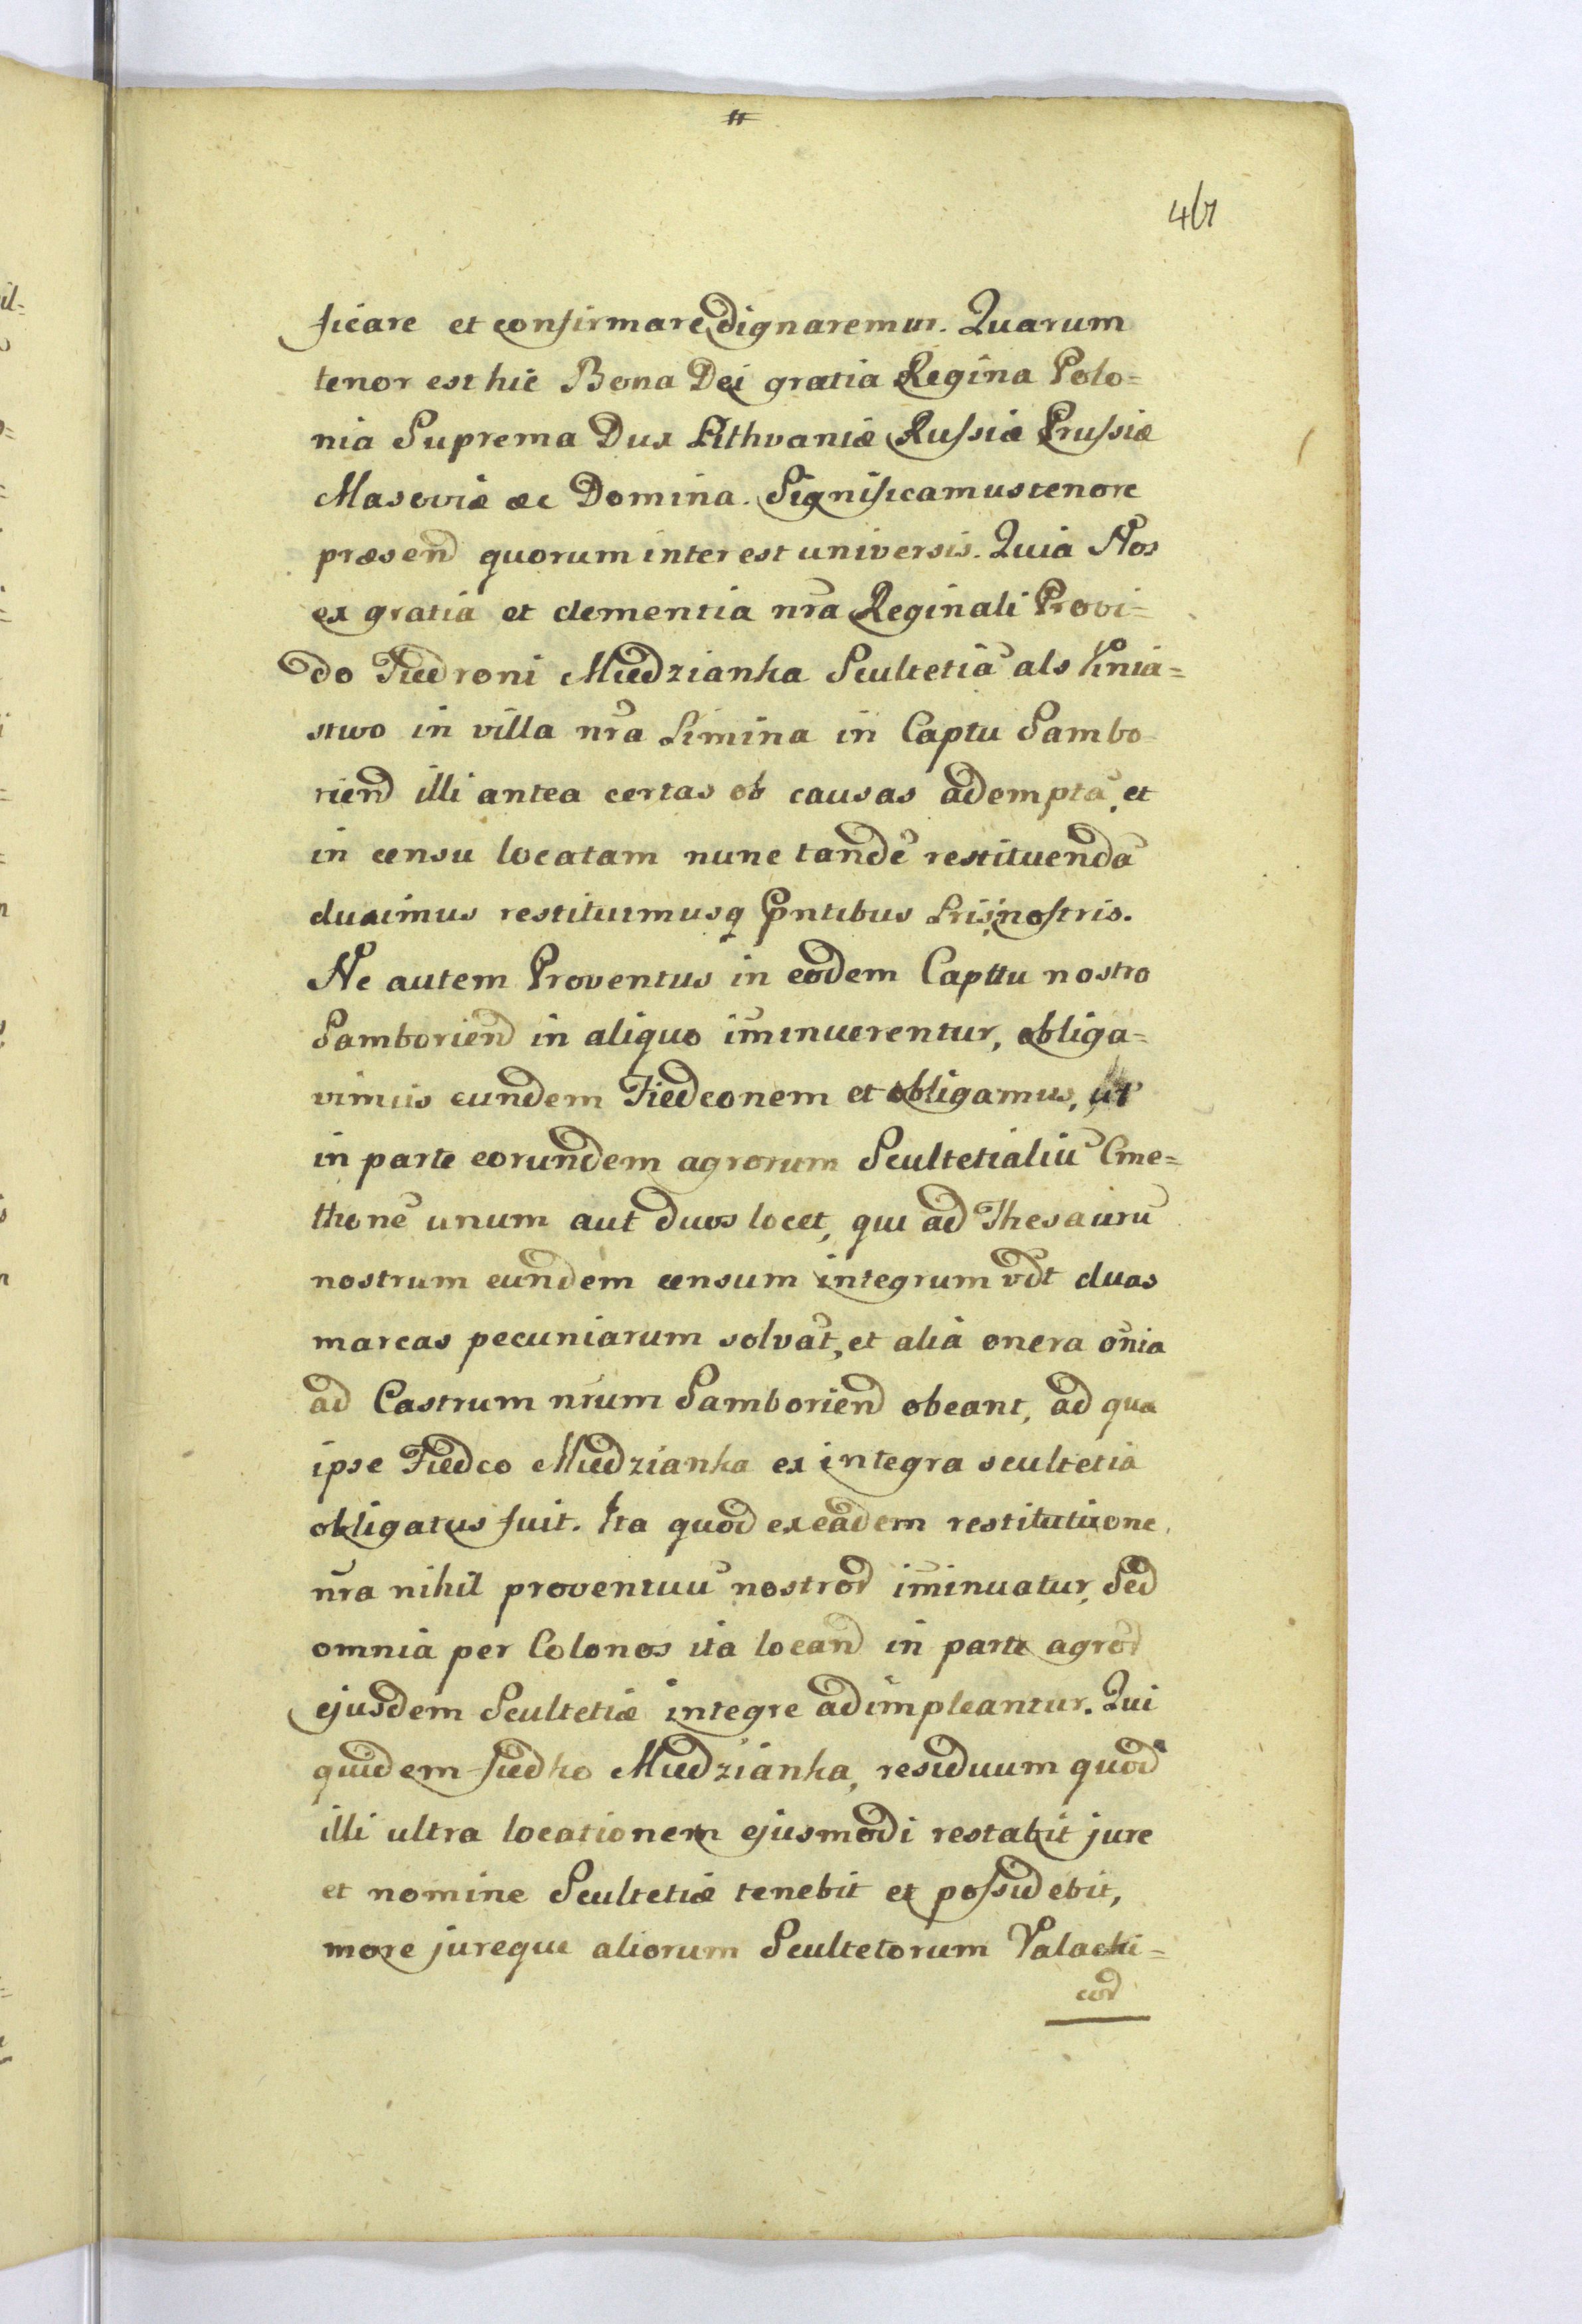 467
ficare et confirmare dignaremur. Quarum
tenor est hic Bona Dei gratia Regina Polo=
nia Suprema Dux Lithvaniæ Russiæ Prussiæ
Masoviæ æc Domina. Significamus tenore
præsend quorum interest universis. Quia Nos
ex gratia et clementia nr̃a Reginali Provi=
do Fiedroni Miedzianka Scultetiã als Knia=
stwo in villa nr̃a Limina in Captu Sambo
riend illi antea certas ob causas ademptã, et
in censu locatam nunc tandẽ restituendã
duximus restituimusq pntibus Lris nostris.
Ne autem Proventus in eodem Capttu nostro
Samboriend in aliquo im̃inuerentur, obliga=
vimus eundem Fiedconem et obligamus, ut
in parte eorundem agrorum Scultetialiũ Cme=
thonẽ unum aut duos locet, qui ad Thesaurũ
nostrum eundem censum integrum vdt duas
marcas pecuniarum solvãt, et alia onera õnia
ad Castrum nr̃um Samboriend obeant, ad qua
ipse Fiedco Miedzianka ex integra scultetia
obligatus fuit. Ita quod ex eadem restitutione
nr̃a nihil proventuũ nostrod im̃inuatur, Sed
omnia per Colonos ita locand in parte agrod
ejusdem Scultetiæ integre adimpleantur. Qui
quidem Fiedko Miedzianka, residuum quod
illi ultra locationem ejusmodi restabit jure
et nomine Scultetiæ tenebit et possidebit,
more jureque aliorum Scultetorum Valachi=
cod